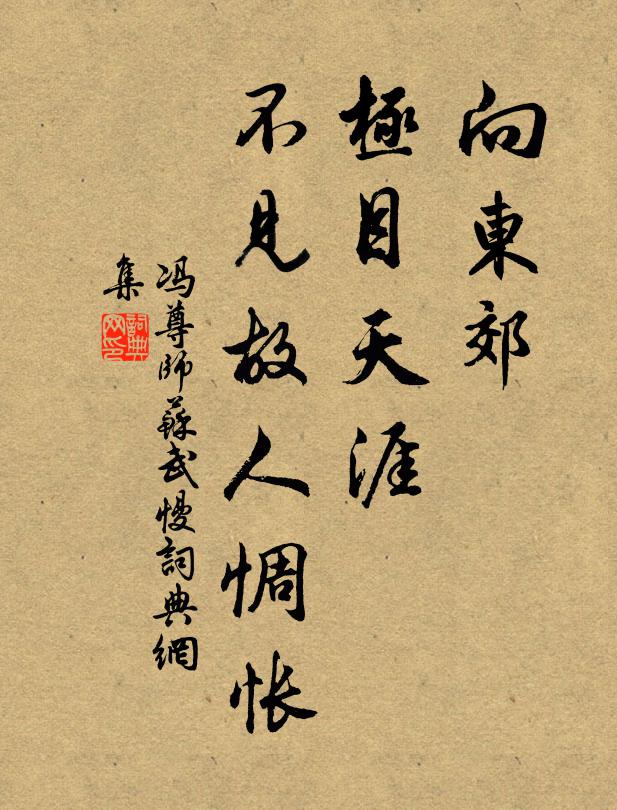 向東郊
極目天涯
不見故人惆怅
冯尊師蘇武慢詞典網
集
詞典網印